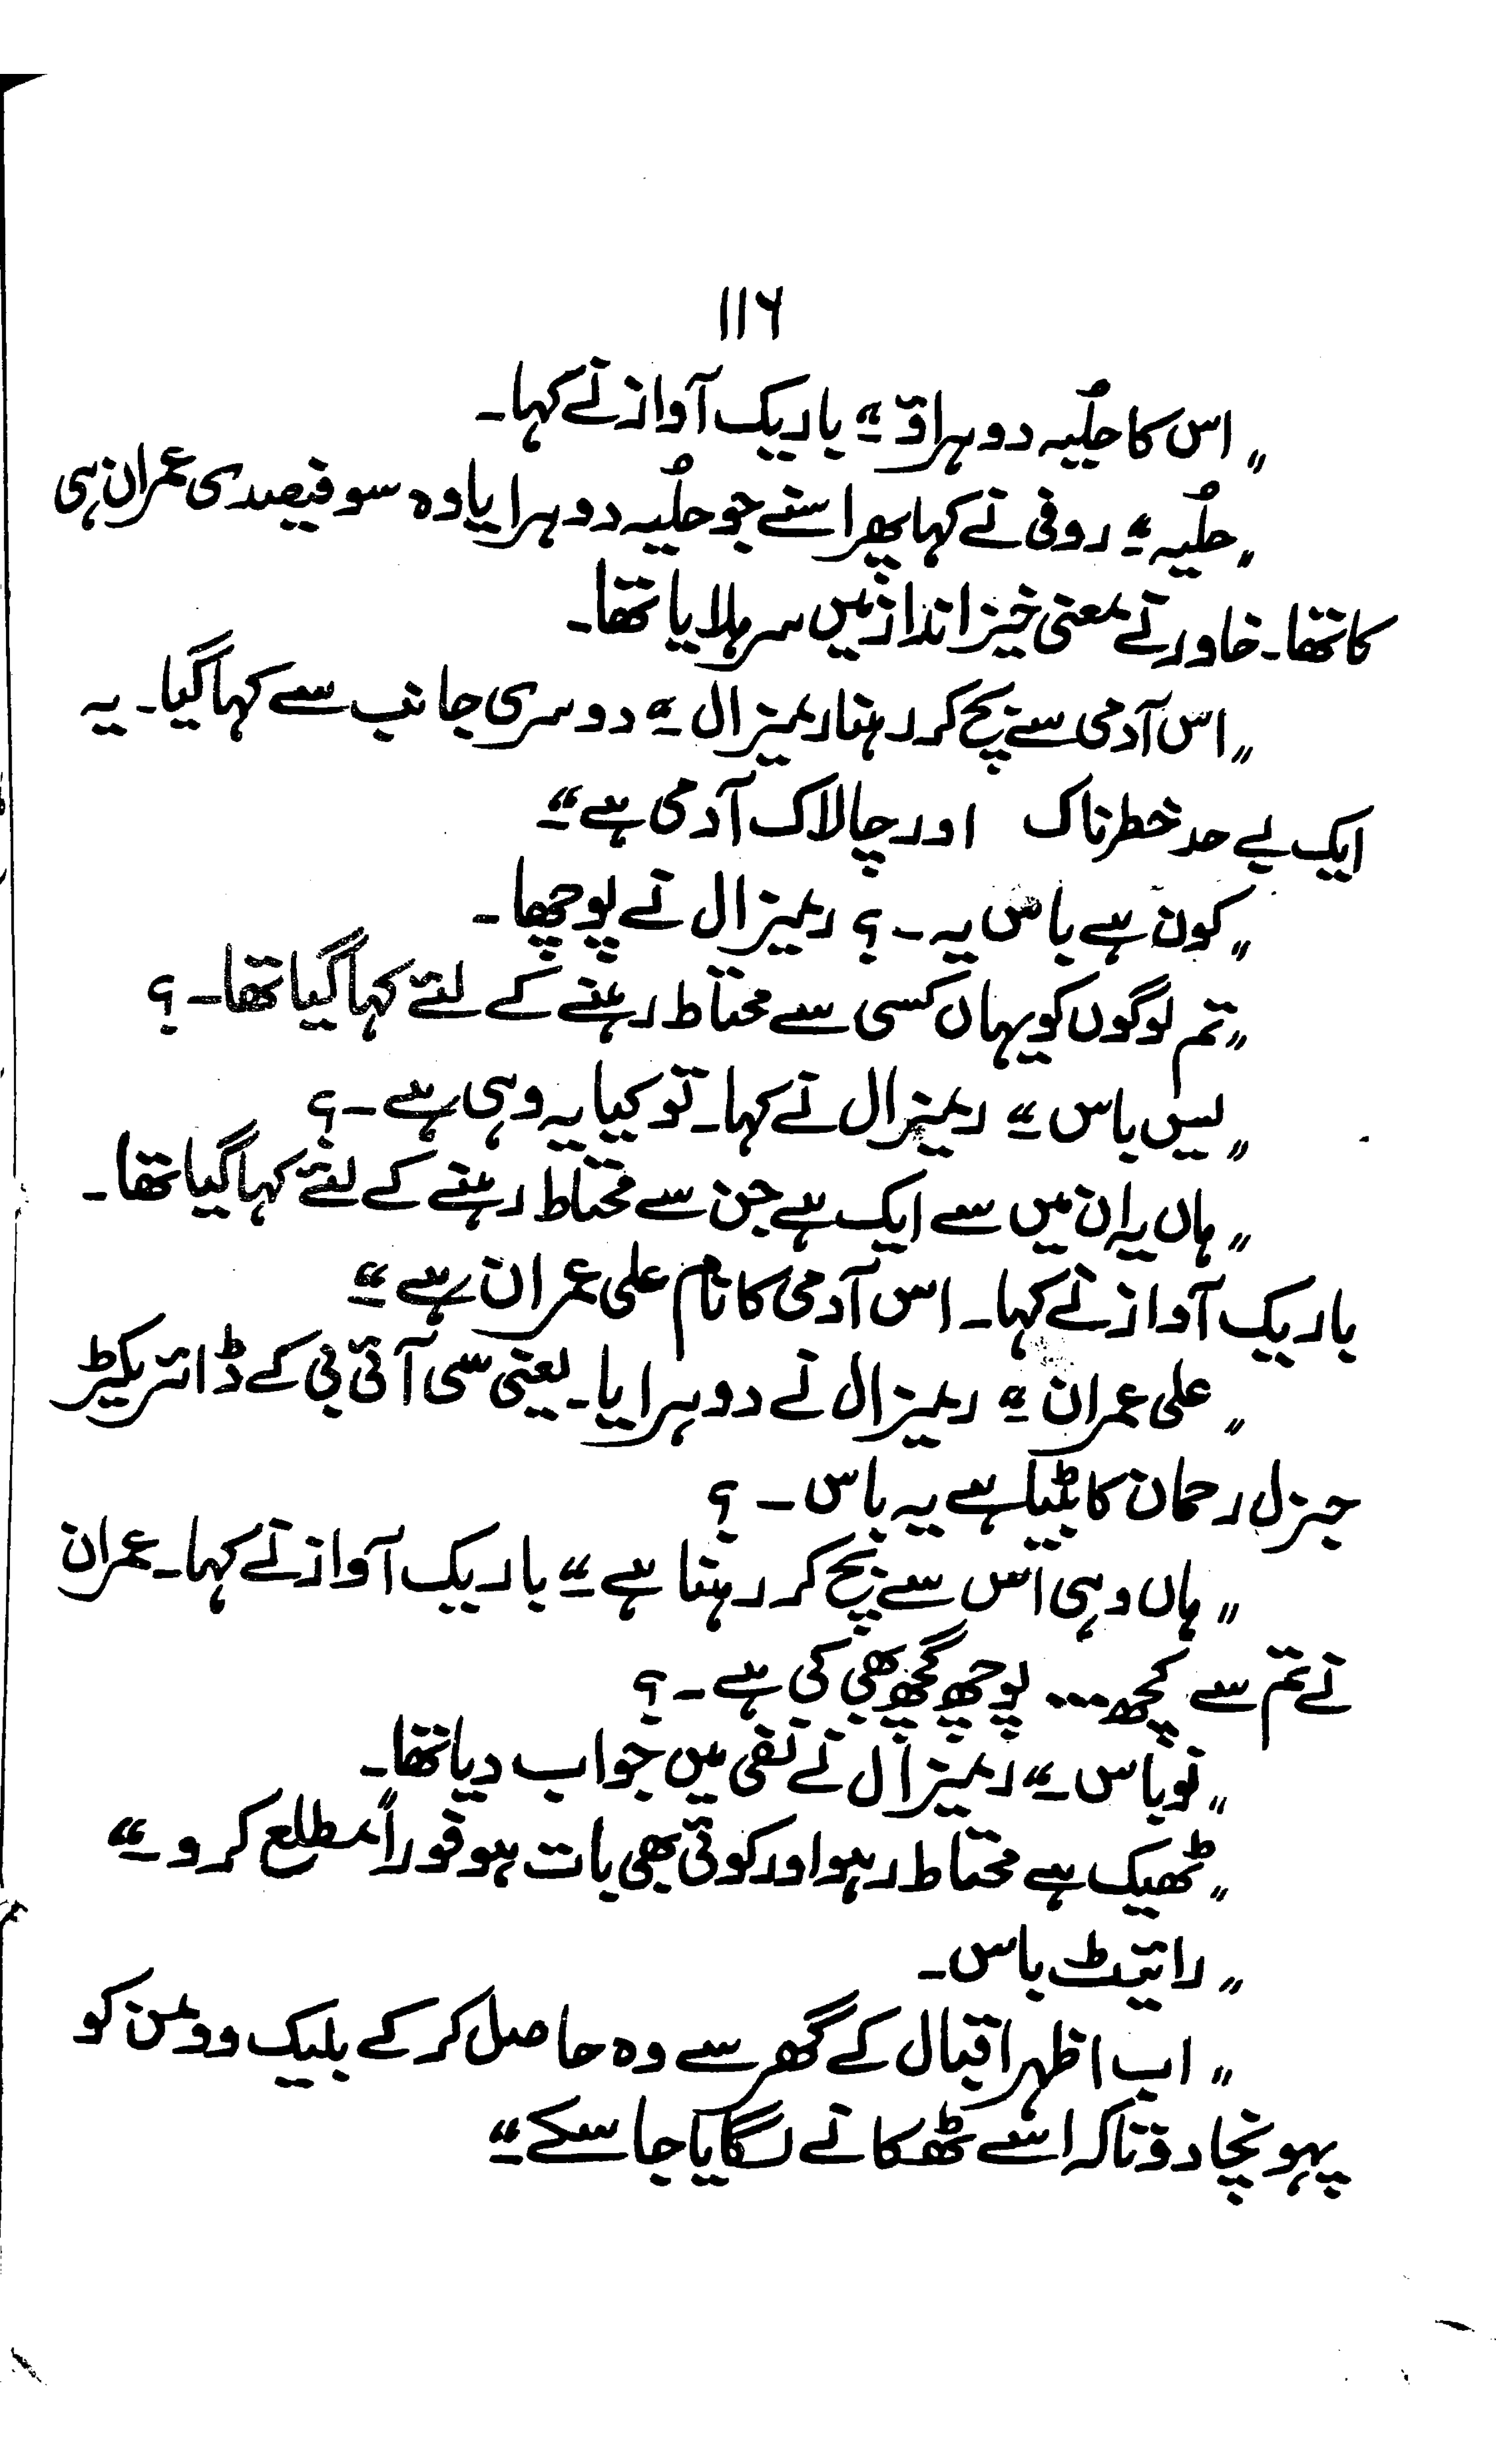 ۱۱۶
"اس کا حلُیہ دوہراؤ" باریک آواز نے کہا۔
"حلُیہ" روفی نے کہا پھر اسنے جو حلُیہ دوہرایا وہ سو فیصدی عمران ہی
کا تھا۔ خاور نے معنی خیز انداز میں سر ہلایا تھا۔
"اس آدمی سے بچ کر رہنا ریمزال" دوسری جانب سے کہا گیا۔ یہ
ایک بے حد خطرناک اور چالاک آدمی ہے"
"کون ہے باس یہ۔؟ ریمزال نے پوچھا۔
"تم لوگوں کو یہاں کسی سے محتاط رہنے کے لئے کہا گیا تھا۔؟
"یس باس" ریمزال نے کہا۔ تو کیا یہ وہی ہے۔؟
"ہاں یہ ان میں سے ایک ہے جن سے محتاط رہنے کے لئے کہا گیا تھا۔
باریک آواز نے کہا۔ اس آدمی کا نام علی عمران ہے"
"علی عمران" ریمزال نے دوہرایا۔ یعنی سی آئی بی کے ڈائریکٹر
جنرل رحمان کا بیٹا ہے یہ باس۔؟
"ہاں وہی اس سے بچ کر رہنا ہے" باریک آواز نے کہا۔ عمران
نے تم سے کچھ... پوچھ گچھ بھی کی ہے۔؟
"نو باس" ریمزال نے نفی میں جواب دیا تھا۔
"ٹھیک ہے محتاط رہو اور کوئی بھی بات ہو فوراً مطلع کرو۔"
"رائیٹ باس۔
"اب اظہر اقبال کے گھر سے وہ حاصل کر کے بلیک وومن کو
پہونچا دو تاکہ اسے ٹھکانے لگایا جا سکے"